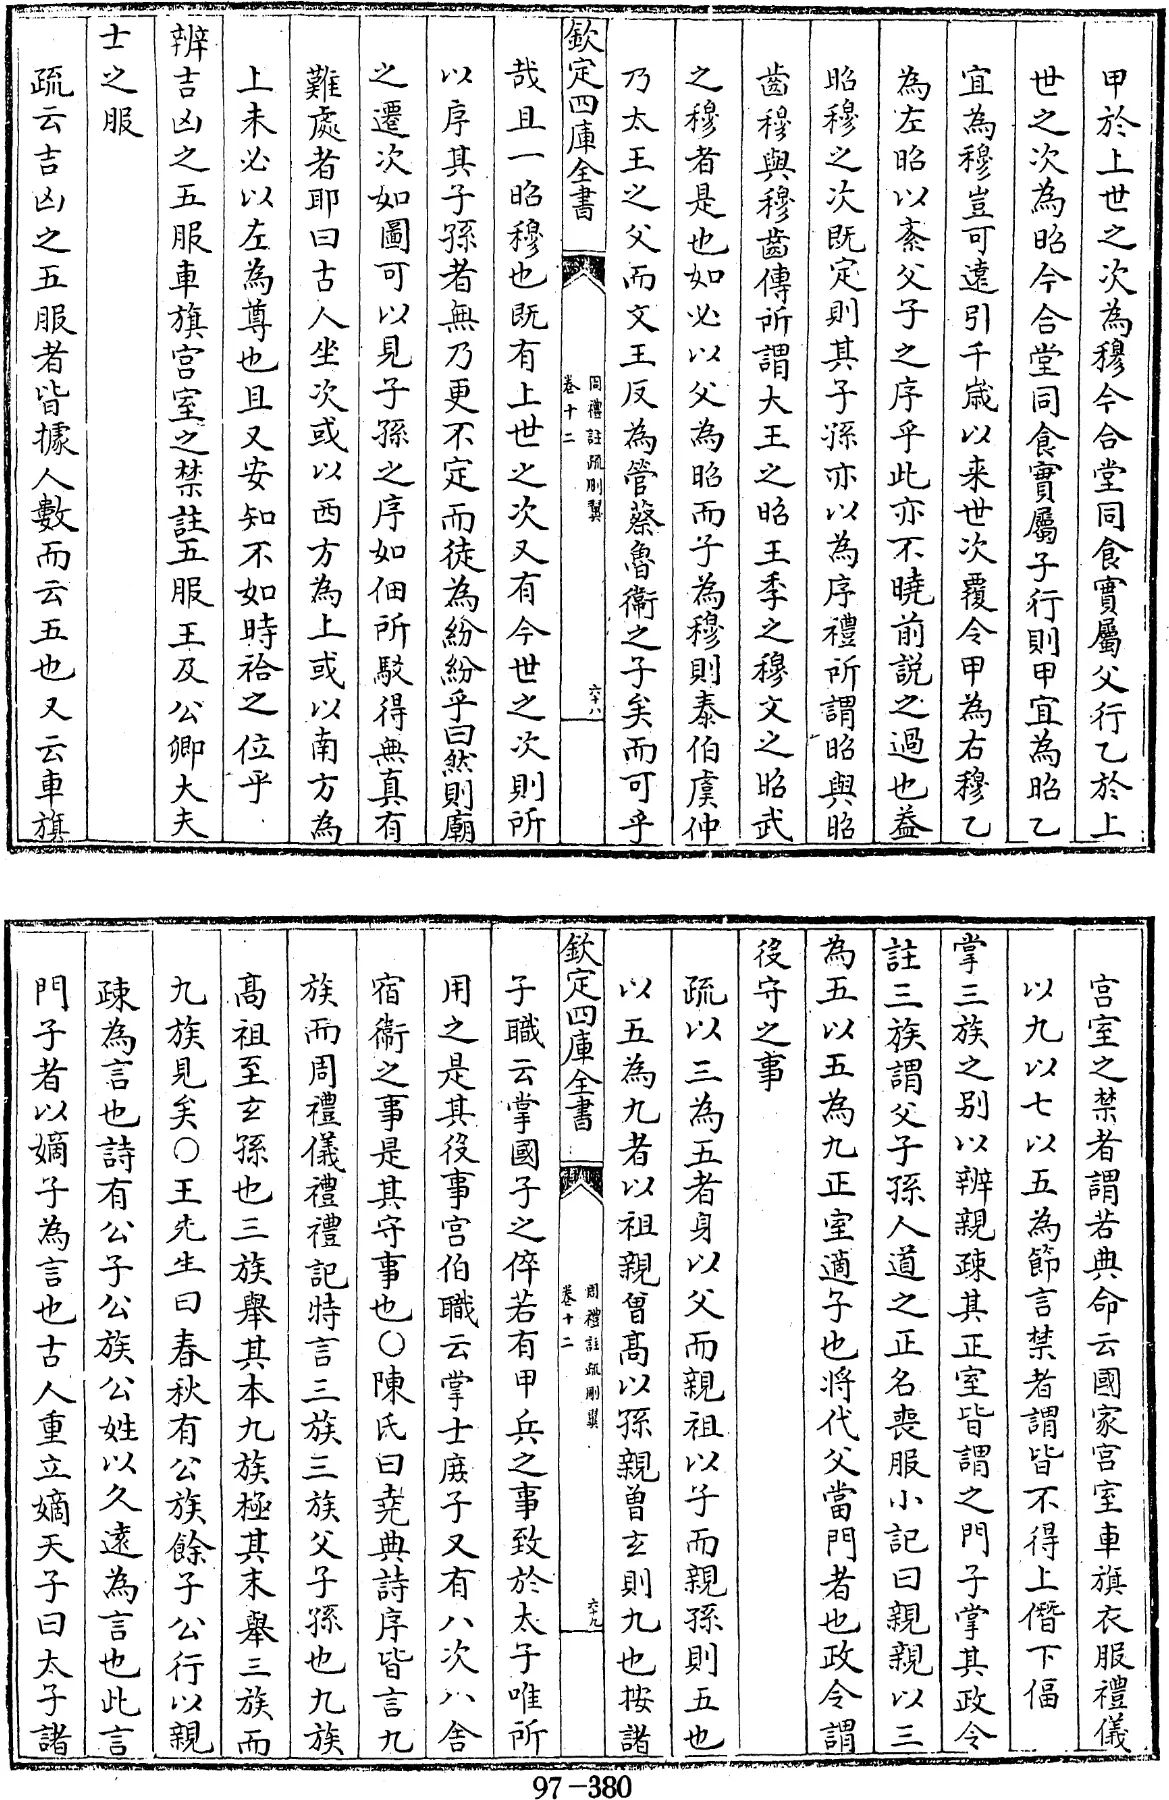 甲於上世之次為穆今合堂同食實屬父行乙於上
世之次為昭今合堂同食實屬子行則甲宜為昭乙
宜為穆豈可遠引千歲以来世次覆令甲為右穆乙
為左昭以紊父子之序乎此亦不曉前説之過也葢
昭穆之次既定則其子孫亦以為序禮所謂昭與昭
齒穆與穆齒傳所謂大王之昭王季之穆文之昭武
之穆者是也如必以父為昭而子為穆則泰伯虞仲
乃太王之父而文王反為管蔡魯衞之子矣而可乎
欽定四庫全書
周禮註疏刪翼
卷十二
六十八
哉且一昭穆也既有上世之次又有今世之次則所
以序其子孫者無乃更不定而徒為紛紛乎曰然則廟
之遷次如圖可以見子孫之序如佃所駁得無真有
難處者耶曰古人坐次或以西方為上或以南方為
上未必以左為尊也且又安知不如時祫之位乎
辨吉凶之五服車旗宫室之禁註五服王及公卿大夫
士之服
疏云吉凶之五服者皆據人數而云五也又云車旗
宫室之禁者謂若典命云國家宫室車旗衣服禮儀
以九以七以五為節言禁者謂皆不得上僭下偪
掌三族之别以辨親疎其正室皆謂之門子掌其政令
註三族謂父子孫人道之正名喪服小記曰親親以三
為五以五為九正室適子也將代父當門者也政令謂
役守之事
疏以三為五者身以父而親祖以子而親孫則五也
以五為九者以祖親曾髙以孫親曾玄則九也按諸
欽定四庫全書
周禮註疏刪翼
卷十二
六十九
子職云掌國子之倅若有甲兵之事致於太子唯所
用之是其役事宫伯職云掌士庶子又有八次八舍
宿衞之事是其守事也○陳氏曰堯典詩序皆言九
族而周禮儀禮禮記特言三族三族父子孫也九族
髙祖至玄孫也三族舉其本九族極其末舉三族而
九族見矣○王先生曰春秋有公族餘子公行以親
疎為言也詩有公子公族公姓以久遠為言也此言
門子者以嫡子為言也古人重立嫡天子曰太子諸
97-380